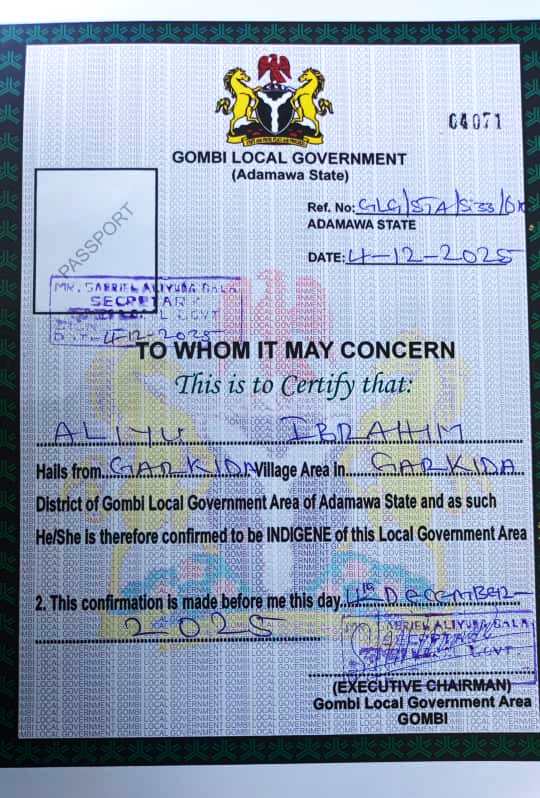 04071
GOMBI LOCAL GOVERNMENT
(Adamawa State)
Ref. No: GLG/STA/S.33/
ADAMAWA STATE
DATE: 4-12-2025
PASSPORT
MR. GABRIEL ALIYUDA BALA
SECRETARY
LOCAL GOVT
4-12-2025
TO WHOM IT MAY CONCERN
This is to Certify that:
ALIYU IBRAHIM
Hails from GARKIDA Village Area in GARKIDA
District of Gombi Local Government Area of Adamawa State and as such
He/She is therefore confirmed to be INDIGENE of this Local Government Area
2. This confirmation is made before me this day 4th DECEMBER
2025
GABRIEL ALIYUDA BALA
GOVT.
(EXECUTIVE CHAIRMAN)
Gombi Local Government Area
GOMBI